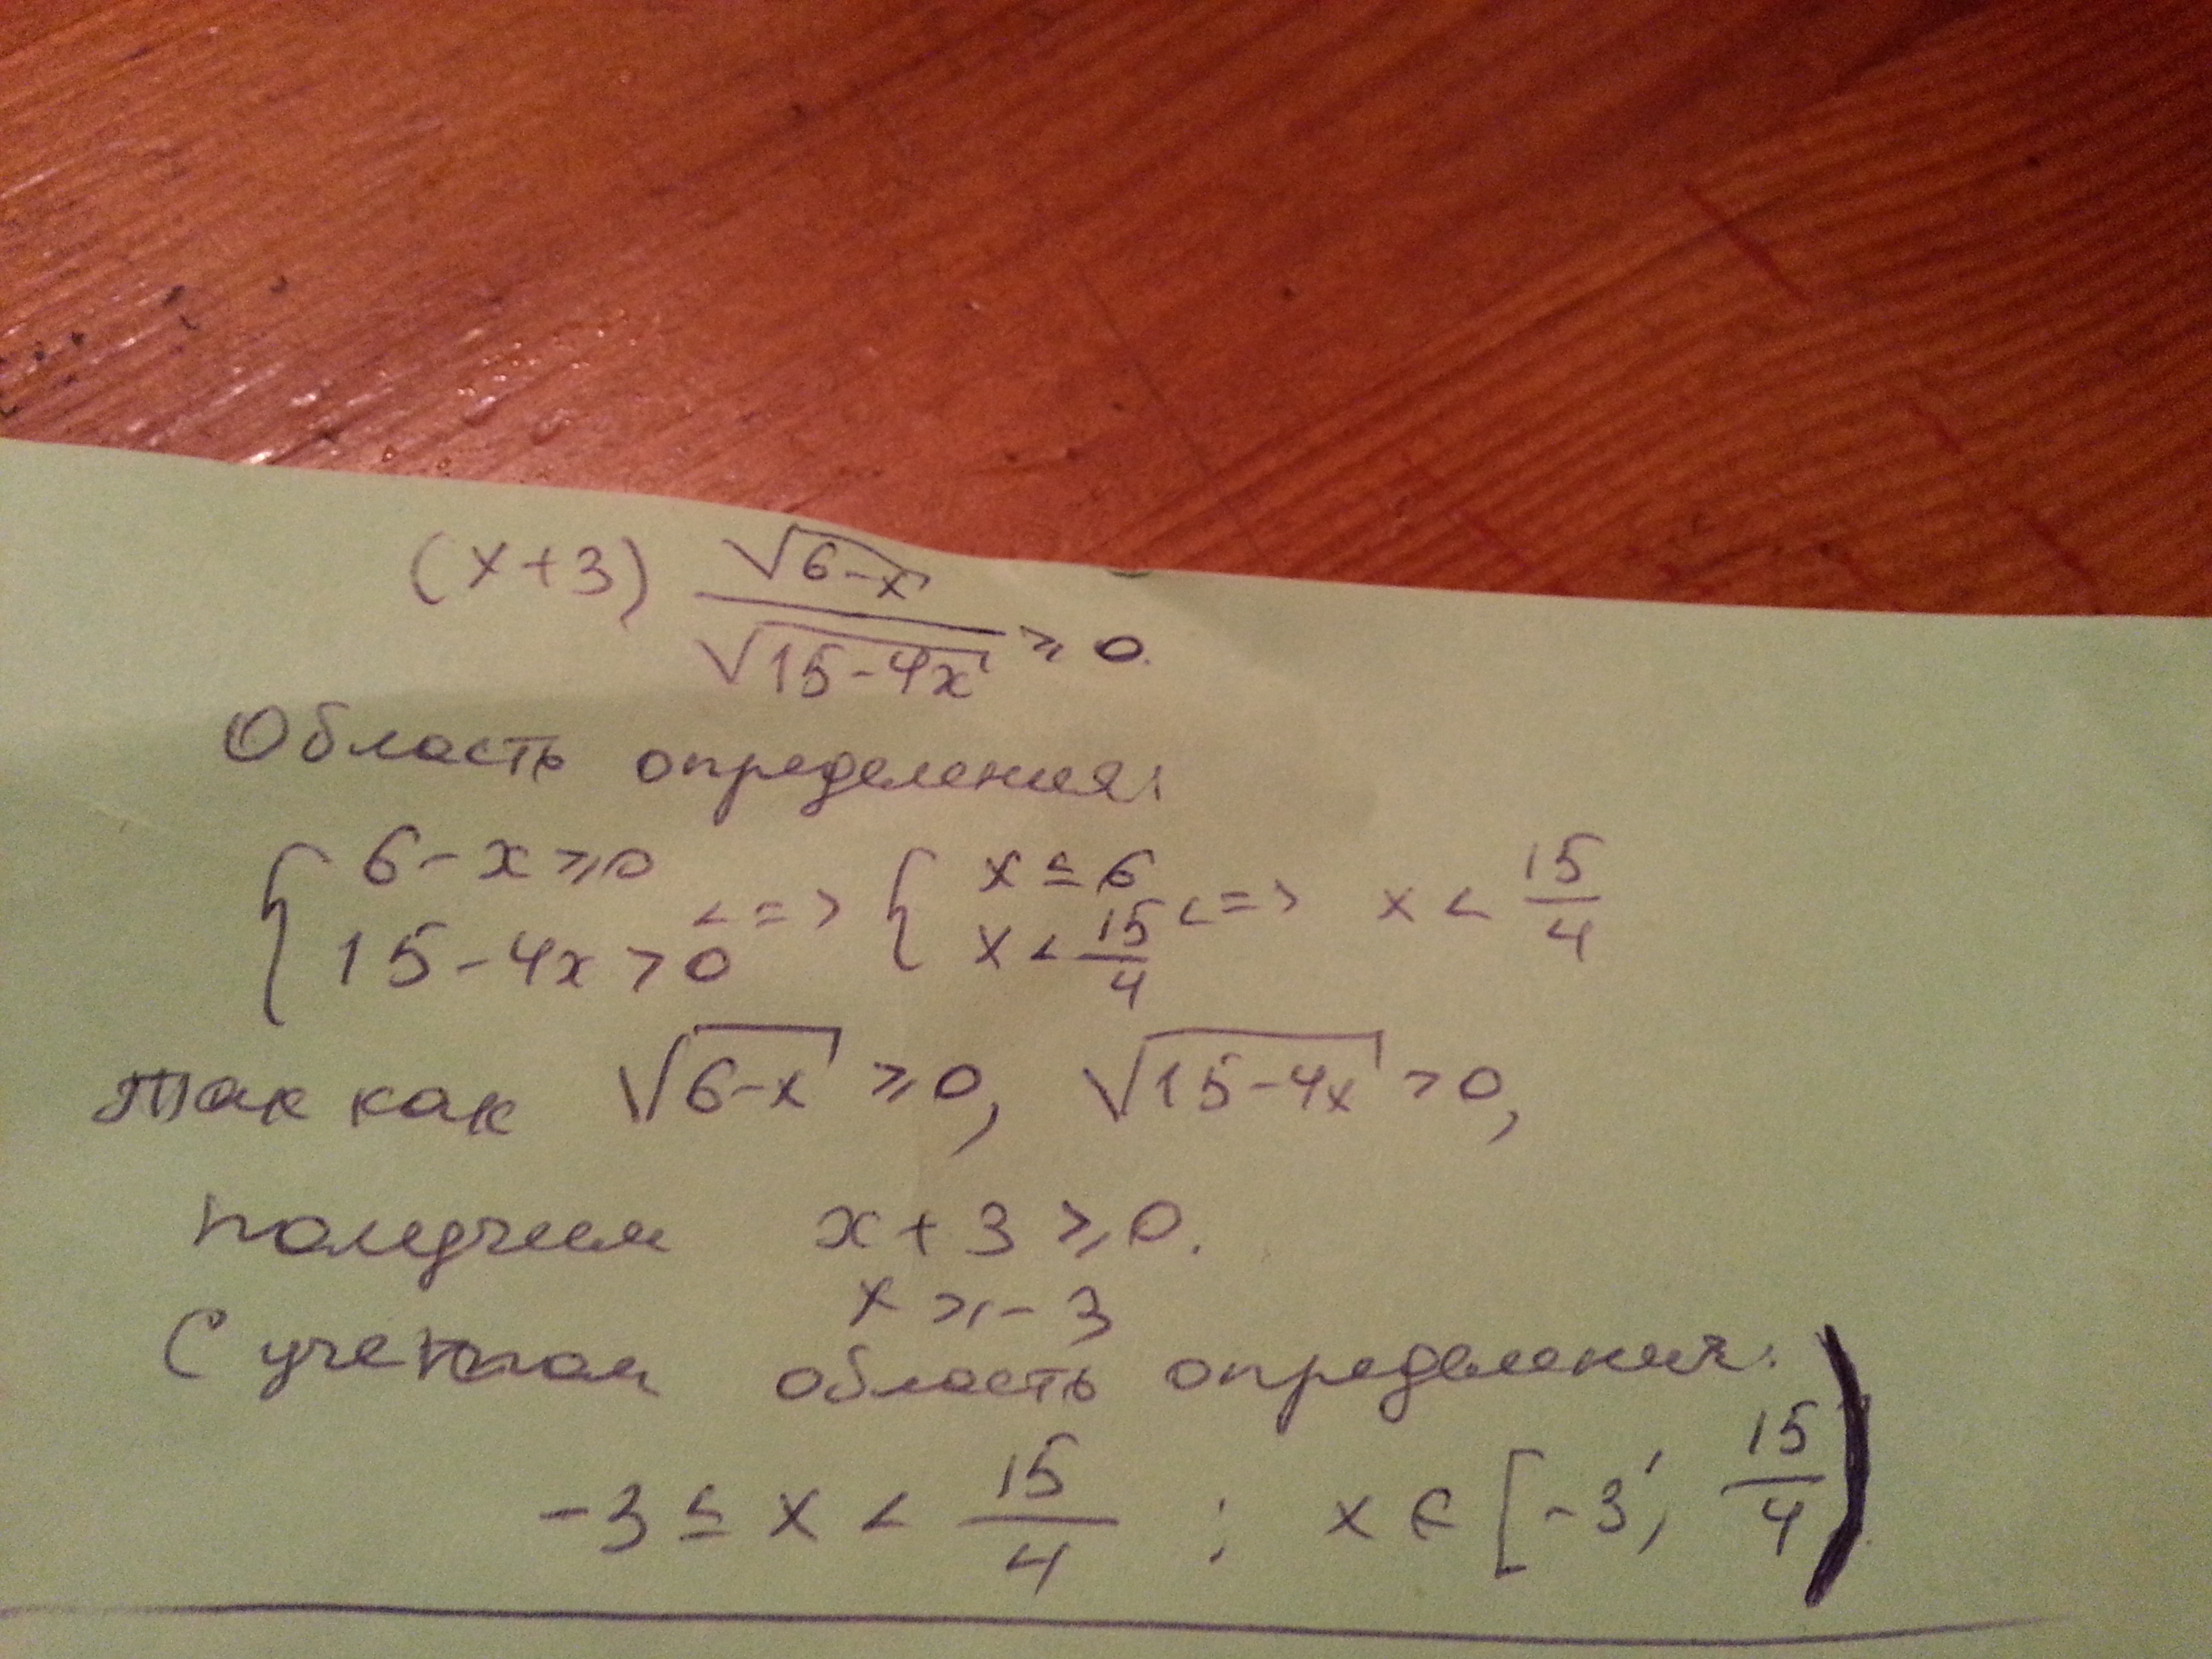 (x+3) √(6-x) / √(15-4x) ≥ 0.
Область определения:
{ 6-x ≥ 0 <=> { x ≤ 6 <=> x < 15/4
15-4x > 0 x < 15/4
так как √(6-x) ≥ 0, √(15-4x) > 0,
получим x+3 ≥ 0.
x ≥ -3
С учетом область определения:
-3 ≤ x < 15/4 ; x ∈ [-3; 15/4).